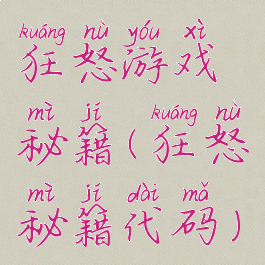 kuáng nù yóu xì
狂怒游戏
mì jí kuáng nù
秘籍(狂怒
mì jí dài mǎ
秘籍代码)